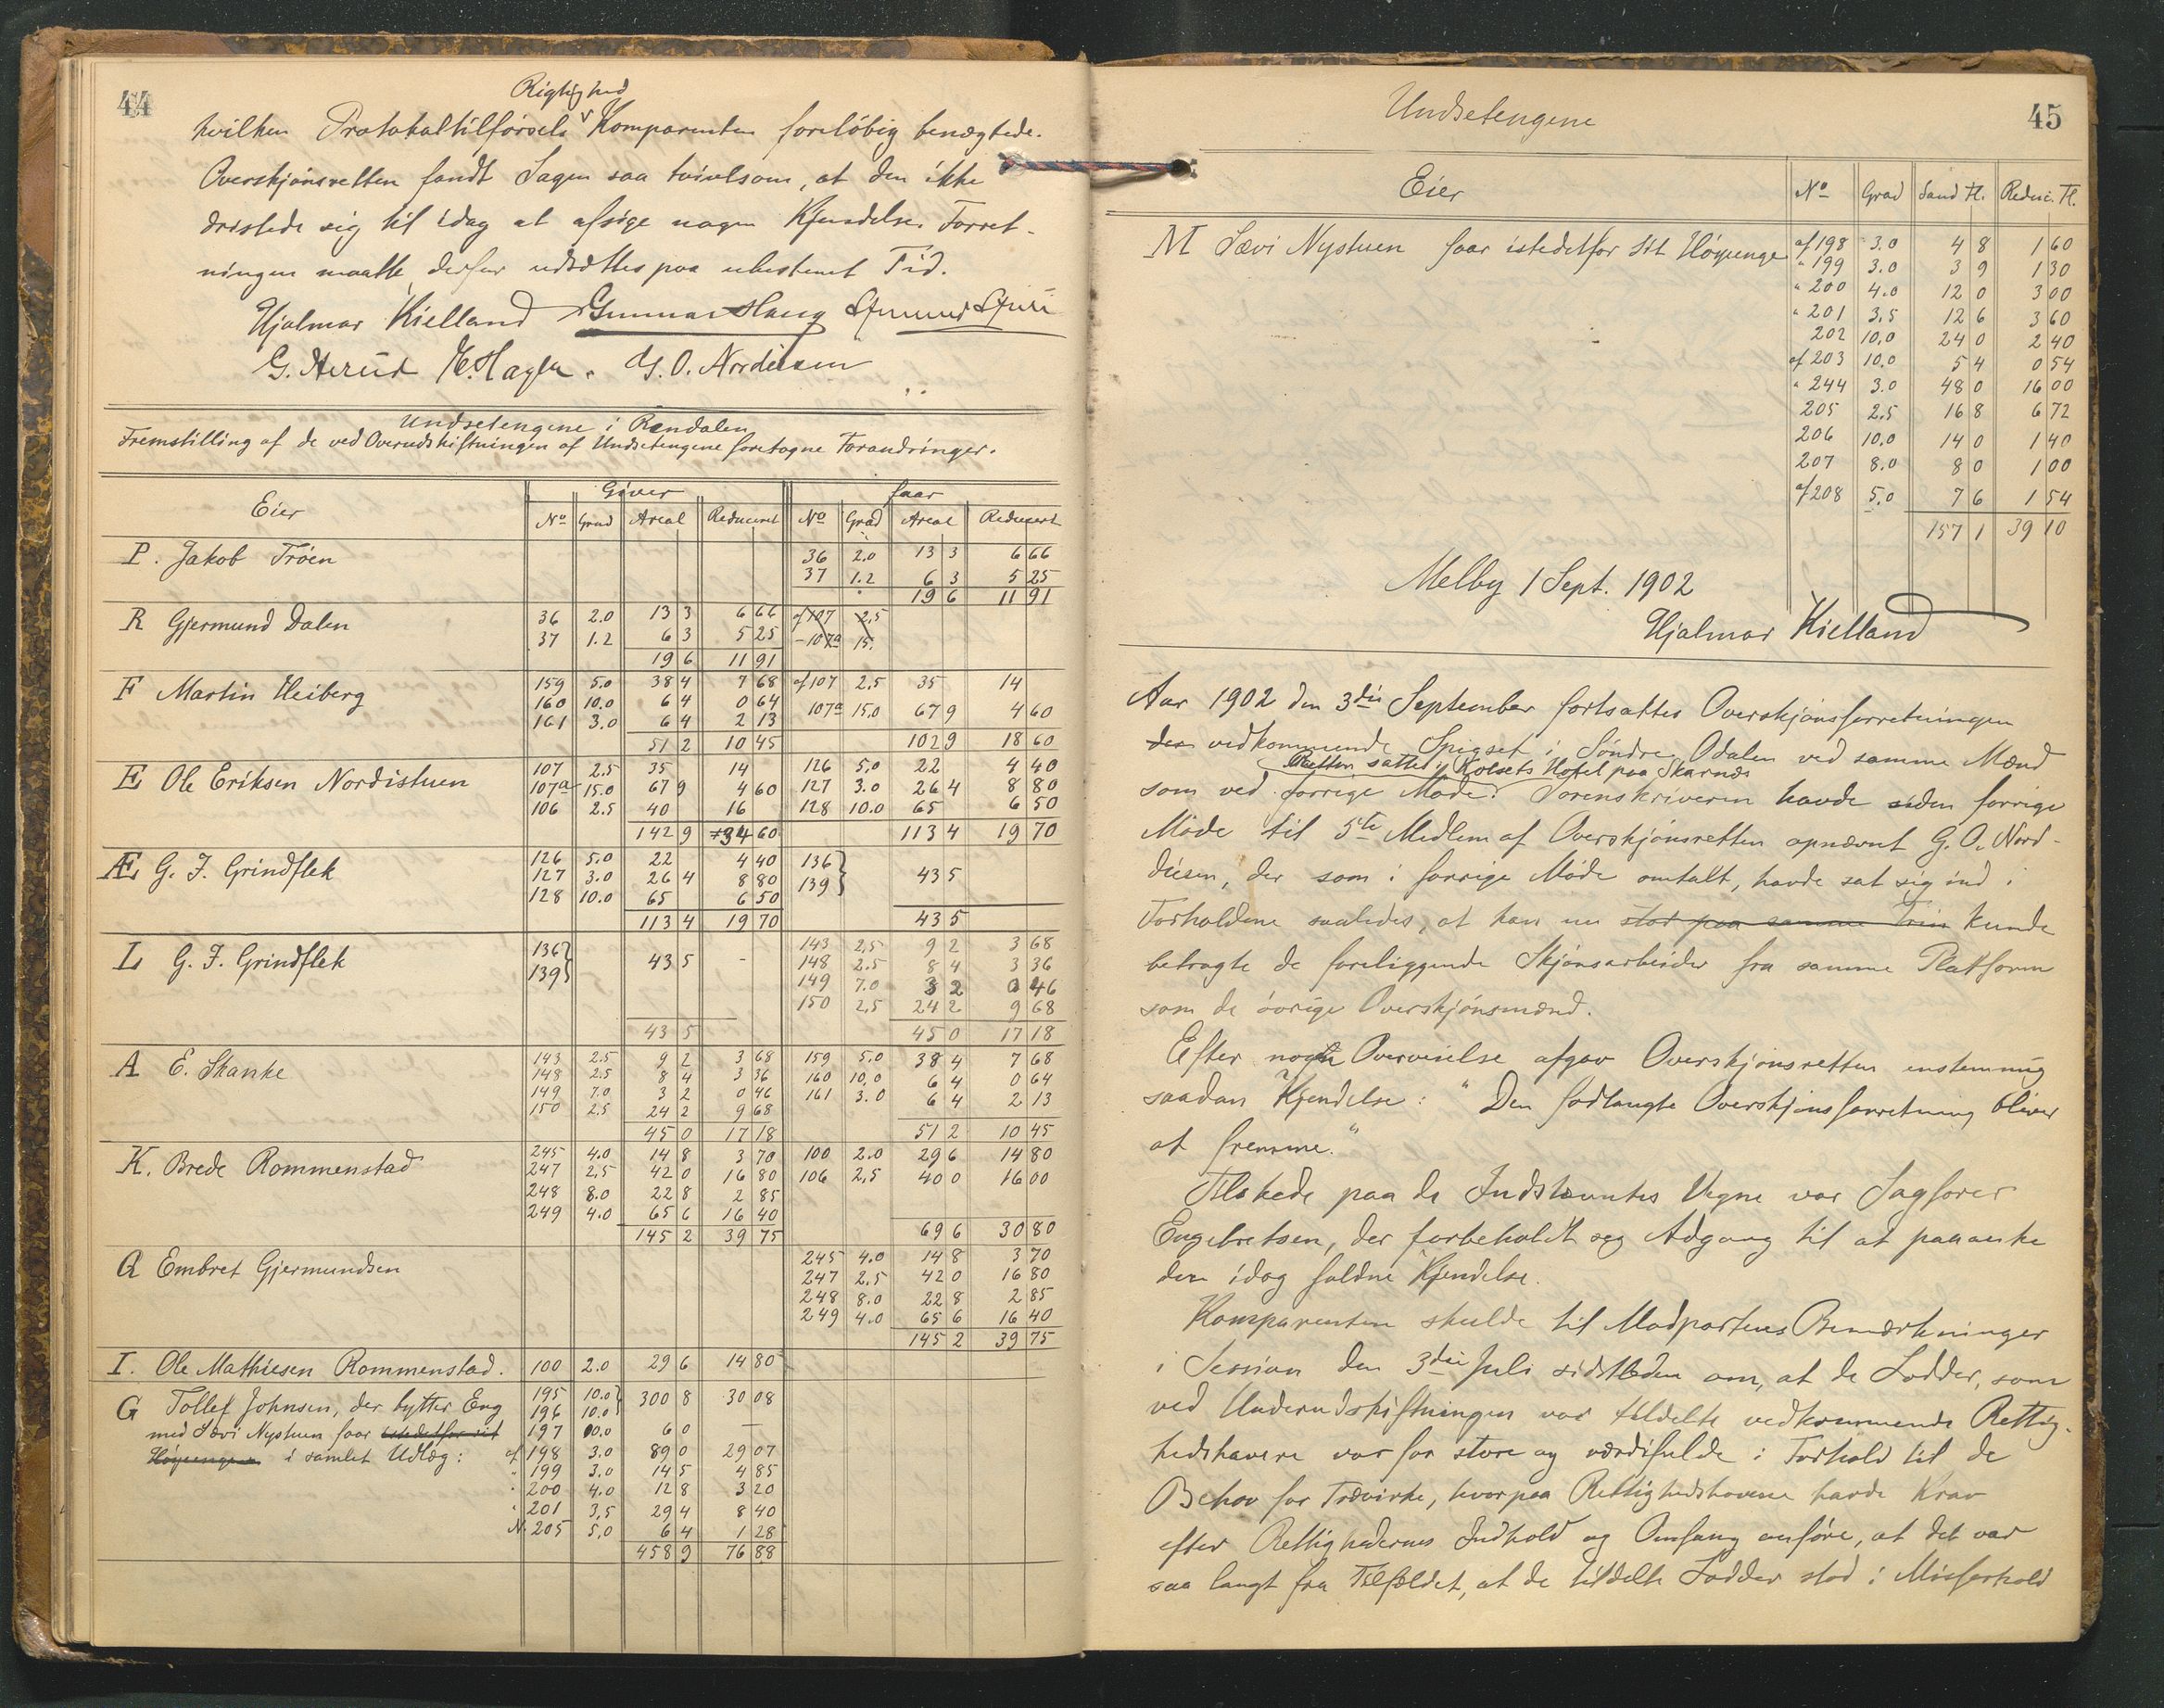 44
Rigtighed
hvilken Protokoltilførsels Komparenten foreløbig benægtede.
Overskjønsretten fandt Sagen saa tvivlsom, at den ikke
dristede sig til idag at afsige nogen Kjendelse. Forret-
ningen maatte derfor udsættes paa ubestemt Tid.
Hjalmar Kielland Gunnar Haug
G. Herud G. O. Nordiesen
Undsetengene i Rendalen
Fremstilling af de ved Overudskiftningen af Undsetengene foretagne Forandringer.
Giver faar
Eier No Grad Areal Reduceret No Grad Areal Reducert
P. Jakob Trøen 36 2.0 13 3 6 66
37 1.2 6 3 5 25
19 6 11 91
R Gjermund Dalen 36 2.0 13 3 6 66 af 107 2,5
37 1.2 6 3 5 25 - 107a 15.
19 6 11 91
F Martin Heiberg 159 5.0 38 4 7 68 af 107 2,5 35 14
160 10.0 6 4 0 64 107a 15.0 67 9 4 60
161 3.0 6 4 2 13
51 2 10 45 102 9 18 60
E Ole Eriksen Nordistuen 107 2.5 35 14 126 5,0 22 4 40
107a 15.0 67 9 4 60 127 3.0 26 4 8 80
106 2.5 40 16 128 10.0 65 6 50
142 9 34 60 113 4 19 70
Æ G. J. Grindflek 126 5.0 22 4 40 136
127 3.0 26 4 8 80 139 43 5
128 10.0 65 6 50
113 4 19 70 43 5
L G. J. Grindflek 136 139 43 5 - 143 2,5 9 2 3 68
148 2.5 8 4 3 36
149 7.0 3 2 0 46
150 2,5 24 2 9 68
43 5 45 0 17 18
A E. Skanke 143 2.5 9 2 3 68 159 5.0 38 4 7 68
148 2.5 8 4 3 36 160 10,0 6 4 0 64
149 7.0 3 2 0 46 161 3.0 6 4 2 13
150 2,5 24 2 9 68
45 0 17 18 51 2 10 45
K. Brede Rommenstad 245 4.0 14 8 3 70 100 2.0 29 6 14 80
247 2,5 42 0 16 80 106 2,5 40 0 16 00
248 8.0 22 8 2 85
249 4.0 65 6 16 40
145 2 39 75 69 6 30 80
Q Embret Gjermundsen 245 4.0 14 8 3 70
247 2,5 42 0 16 80
248 8.0 22 8 2 85
249 4.0 65 6 16 40
145 2 39 75
I. Ole Mathiesen Rommenstad. 100 2.0 29 6 14 80
G Tollef Johnsen, der bytter Eng 195 10.0 300 8 30 08
196 10.0
med Sævi Nystuen faar istedetfor sit 197 00.0 6 0 —
Høyengen i samlet Udlæg: af 198 3.0 89 0 29 07
" 199 3.0 14 5 4 85
" 200 4.0 12 8 3 20
" 201 3,5 29 4 8 40
N. 205 5,0 6 4 1 28
458 9 76 88
Undsetengene
45
Eier No Grad Sand Fl. Reduc. Fl.
M Sævi Nystuen faar istedetfor sit Høyenge af 198 3.0 4 8 1 60
" 199 3.0 3 9 1 30
" 200 4.0 12 0 3 00
" 201 3,5 12 6 3 60
202 10,0 24 0 2 40
af 203 10.0 5 4 0 54
" 244 3.0 48 0 16 00
205 2,5 16 8 6 72
206 10.0 14 0 1 40
207 8.0 8 0 1 00
af 208 5,0 7 6 1 54
157 1 39 10
Melby 1 Sept. 1902
Hjalmar Kielland
Aar 1902 den 3die September fortsattes Overskjønsforretningen
des vedkommende Spigset i Søndre Odalen ved samme Mænd
Retten sattes i Kolsets Hotel paa Skarnæs
som ved forrige Møde. Sorenskriveren havde siden forrige
Møde til 5te Medlem af Overskjønsretten opnævnt G. O. Nord-
diesen, der som i forrige Møde omtalt, havde sat sig ind i
Forholdene saaledes, at han nu stod paa samme Trin kunde
betragte de foreliggende Skjønsarbeider fra samme Platform
som de øvrige Overskjønsmænd.
Efter nogen Overveielse afgav Overskjønsretten enstemmig
saadan Kjendelse: "Den forlangte Overskjønsforretning bliver
at fremme."
Tilstede paa de Indstevntes Vegne var Sagfører
Engebretsen, der forbeholdt seg Adgang til at paaanke
den idag faldne Kjendelse.
Komparenten skulde til Modpartens Bemærkninger
i Session den 3die Juli sidstleden om, at de Lodder, som
ved Underudskiftningen var tildelte vedkommende Rettig-
hedshavere var for store og værdifulde i Forhold til de
Behov for Trævirke, hvorpaa Rettighedshaverne havde Krav
efter Rettighedernes Indhold og Omfang anføre, at det var
saa langt fra Tilfældet, at de tildelte Lodder stod i Misforhold